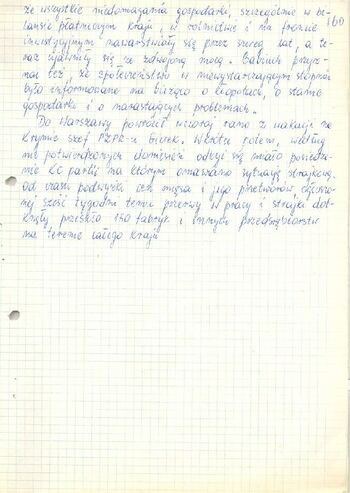 160
że wszystkie niedomagania gospodarki, szczególnie w bi-
lansie płatniczym kraju, w rolnictwie i na froncie
inwestycyjnym nawarstwiały się przez szereg lat, a te-
raz ujawniły się ze zdwojoną mocą. Babiuch przyz-
nał też, że społeczeństwo w niewystarczającym stopniu
było informowane na bieżąco o kłopotach, o stanie
gospodarki i o narastających problemach.
Do Warszawy powrócił wczoraj rano z wakacji na
Krymie szef PZPR-u Gierek. Wkrótce potem, według
nie potwierdzonych doniesień odbyć się miało posiedze-
nie KC partii na którym omawiano sytuację strajkową.
Od czasu podwyżki cen mięsa i jego przetworów ogłoszo-
nej sześć tygodni temu przerwy w pracy i strajki dot-
knęły przeszło 150 fabryk i innych przedsiębiorstw
na terenie całego kraju